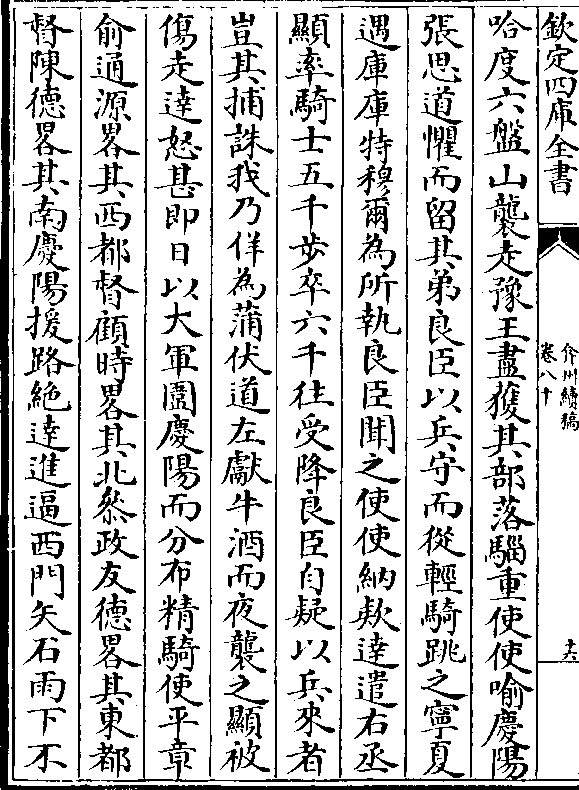 欽定四庫全書
弇州續稿
卷八十
十六
哈度六盤山襲走豫王盡獲其部落騶重使使喻慶陽
張思道懼而留其弟良臣以兵守而從輕騎跳之寧夏
遇庫庫特穆爾為所執良臣聞之使使納款達遣右丞
顯率騎士五千步卒六千往受降良臣自疑以兵來者
豈其捕誅我乃佯為蒲伏道左獻牛酒而夜襲之顯被
傷走達怒甚即日以大軍圍慶陽而分布精騎使平章
俞通源畧其西都督顧時畧其北叅政友德畧其東都
督陳德畧其南慶陽援路絶達進逼西門矢石雨下不